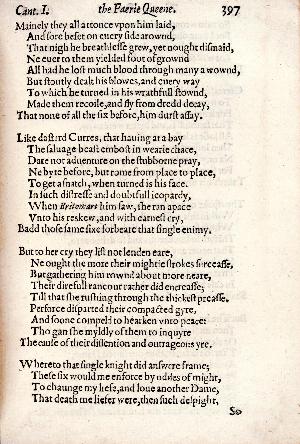 Cant. I. the Faerie Queene. 397
Mainely they all attonce vpon him laid,
And sore beset on euery side arownd,
That nigh he breathlesse grew, yet nought dismaid,
Ne euer to them yielded foot of grownd
All had he lost much blood through many a wownd,
But stoutly dealt his blowes, and euery way
To which he turned in his wrathfull stownd,
Made them recoile, and fly from dredd decay,
That none of all the six before, him durst assay.
Like dastard Curres, that hauing at a bay
The saluage beast embost in wearie chace,
Dare not aduenture on the stubborne pray,
Ne byte before, but rome from place to place,
To get a snatch, when turned is his face.
In such distresse and doubtfull ieopardy,
When Britomart him saw, she ran apace
Vnto his reskew, and with earnest cry,
Badd those same six forbeare that single enimy.
But to her cry they list not lenden eare,
Ne ought the more their mightie strokes surceasse,
But gathering him rownd about more neare,
Their direfull rancour rather did encreasse;
Till that she rushing through the thickest preasse,
Perforce disparted their compacted gyre,
And soone compeld to hearken vnto peace:
Tho gan she myldly of them to inquyre
The cause of their dissention and outrageous yre.
Whereto that single knight did answere frame;
These six would me enforce by oddes of might,
To chaunge my liefe, and loue another Dame,
That death me liefer were, then such despight,
So